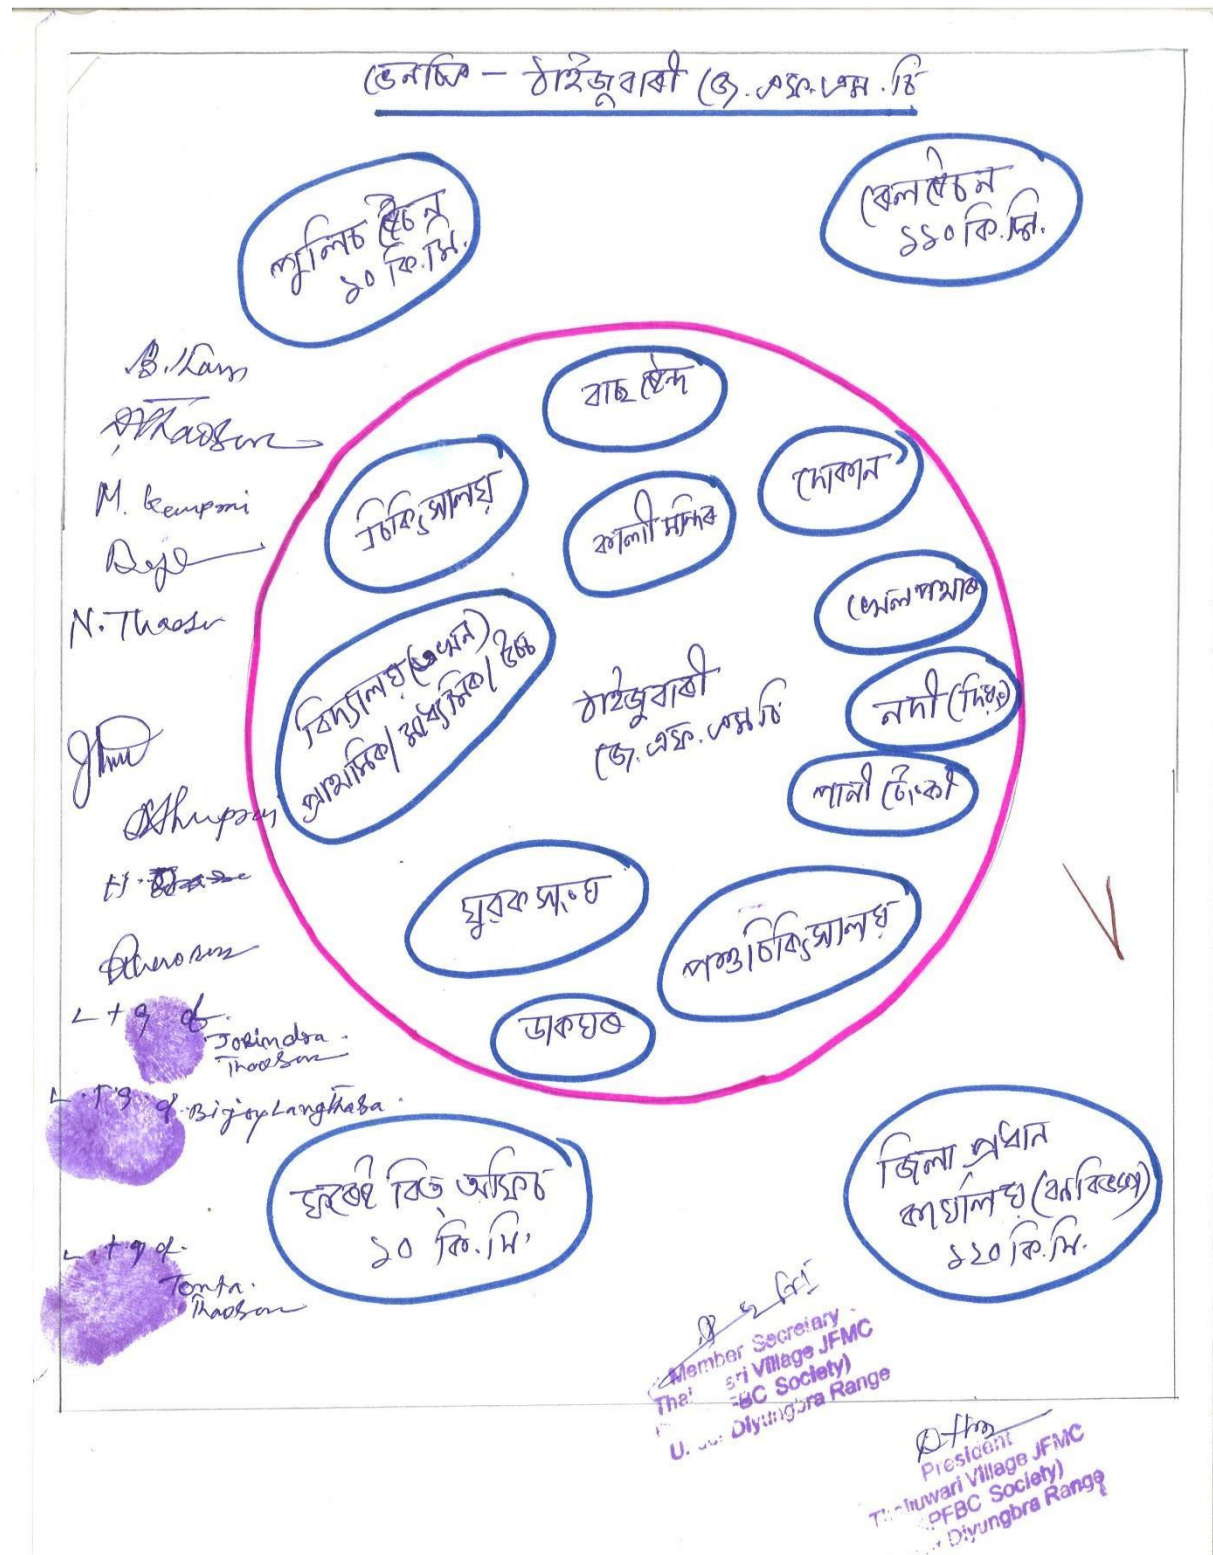 ভেনচিত্ৰ - ঠাইজুবাৰী জে. এফ. এম. চি
পুলিচ ষ্টেচন
১০ কি.মি.
ৰেল ষ্টেচন
১১০ কি.মি.
বাছ ষ্টেন্দ
চিকিৎসালয়
কালী মন্দিৰ
দোকান
খেল পথাৰ
বিদ্যালয়
প্ৰাথমিক/ মাধ্যমিক/ উচ্চ
ঠাইজুবাৰী
জে. এফ. এম চি
নদী
পানী টেংকী
যুৱক সংঘ
পশু চিকিৎসালয়
ডাকঘৰ
ফৰেষ্ট বিত্ অফিচ
১০ কি.মি.
জিলা প্ৰধান
কাৰ্যালয় (বন বিভাগ)
১২০ কি.মি.
M. Kemprai
N. Thaosen
Jorindra
Thaosen
Bijoy Langthasa.
Thaosen
Member Secretary
Village JFMC
Society)
Diyungbra Range
President
Village JFMC
PFBC Society)
Diyungbra Range